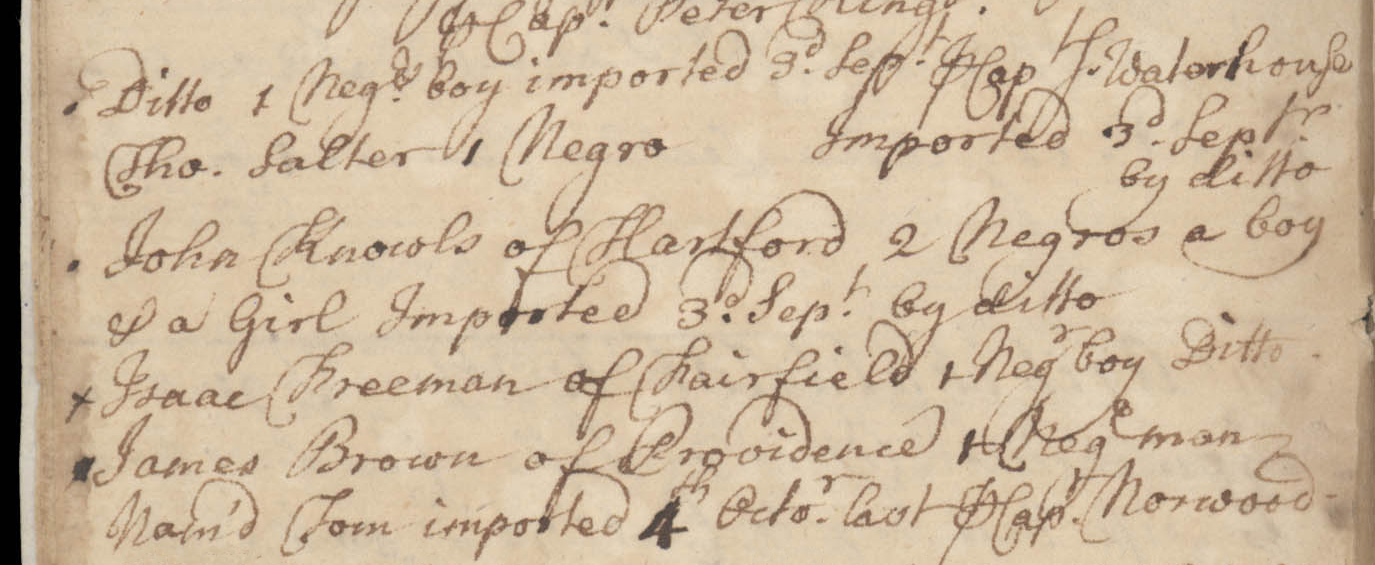 ⅌ Capt. Peter
Ditto 1 Negro boy imported 3d. Sept. ⅌ Cap S. Waterhouse
Tho. Salter 1 Negro Imported 3d. Septr.
by ditto
John Knowls of Hartford 2 Negros a boy
& a Girl Imported 3d. Sept. by ditto
Isaac Freeman of Fairfield 1 Negr boy Ditto.
James Brown of Providence 1 Nego man
Nam'd Tom imported 4th Octor. last ⅌ Capt. Norwood